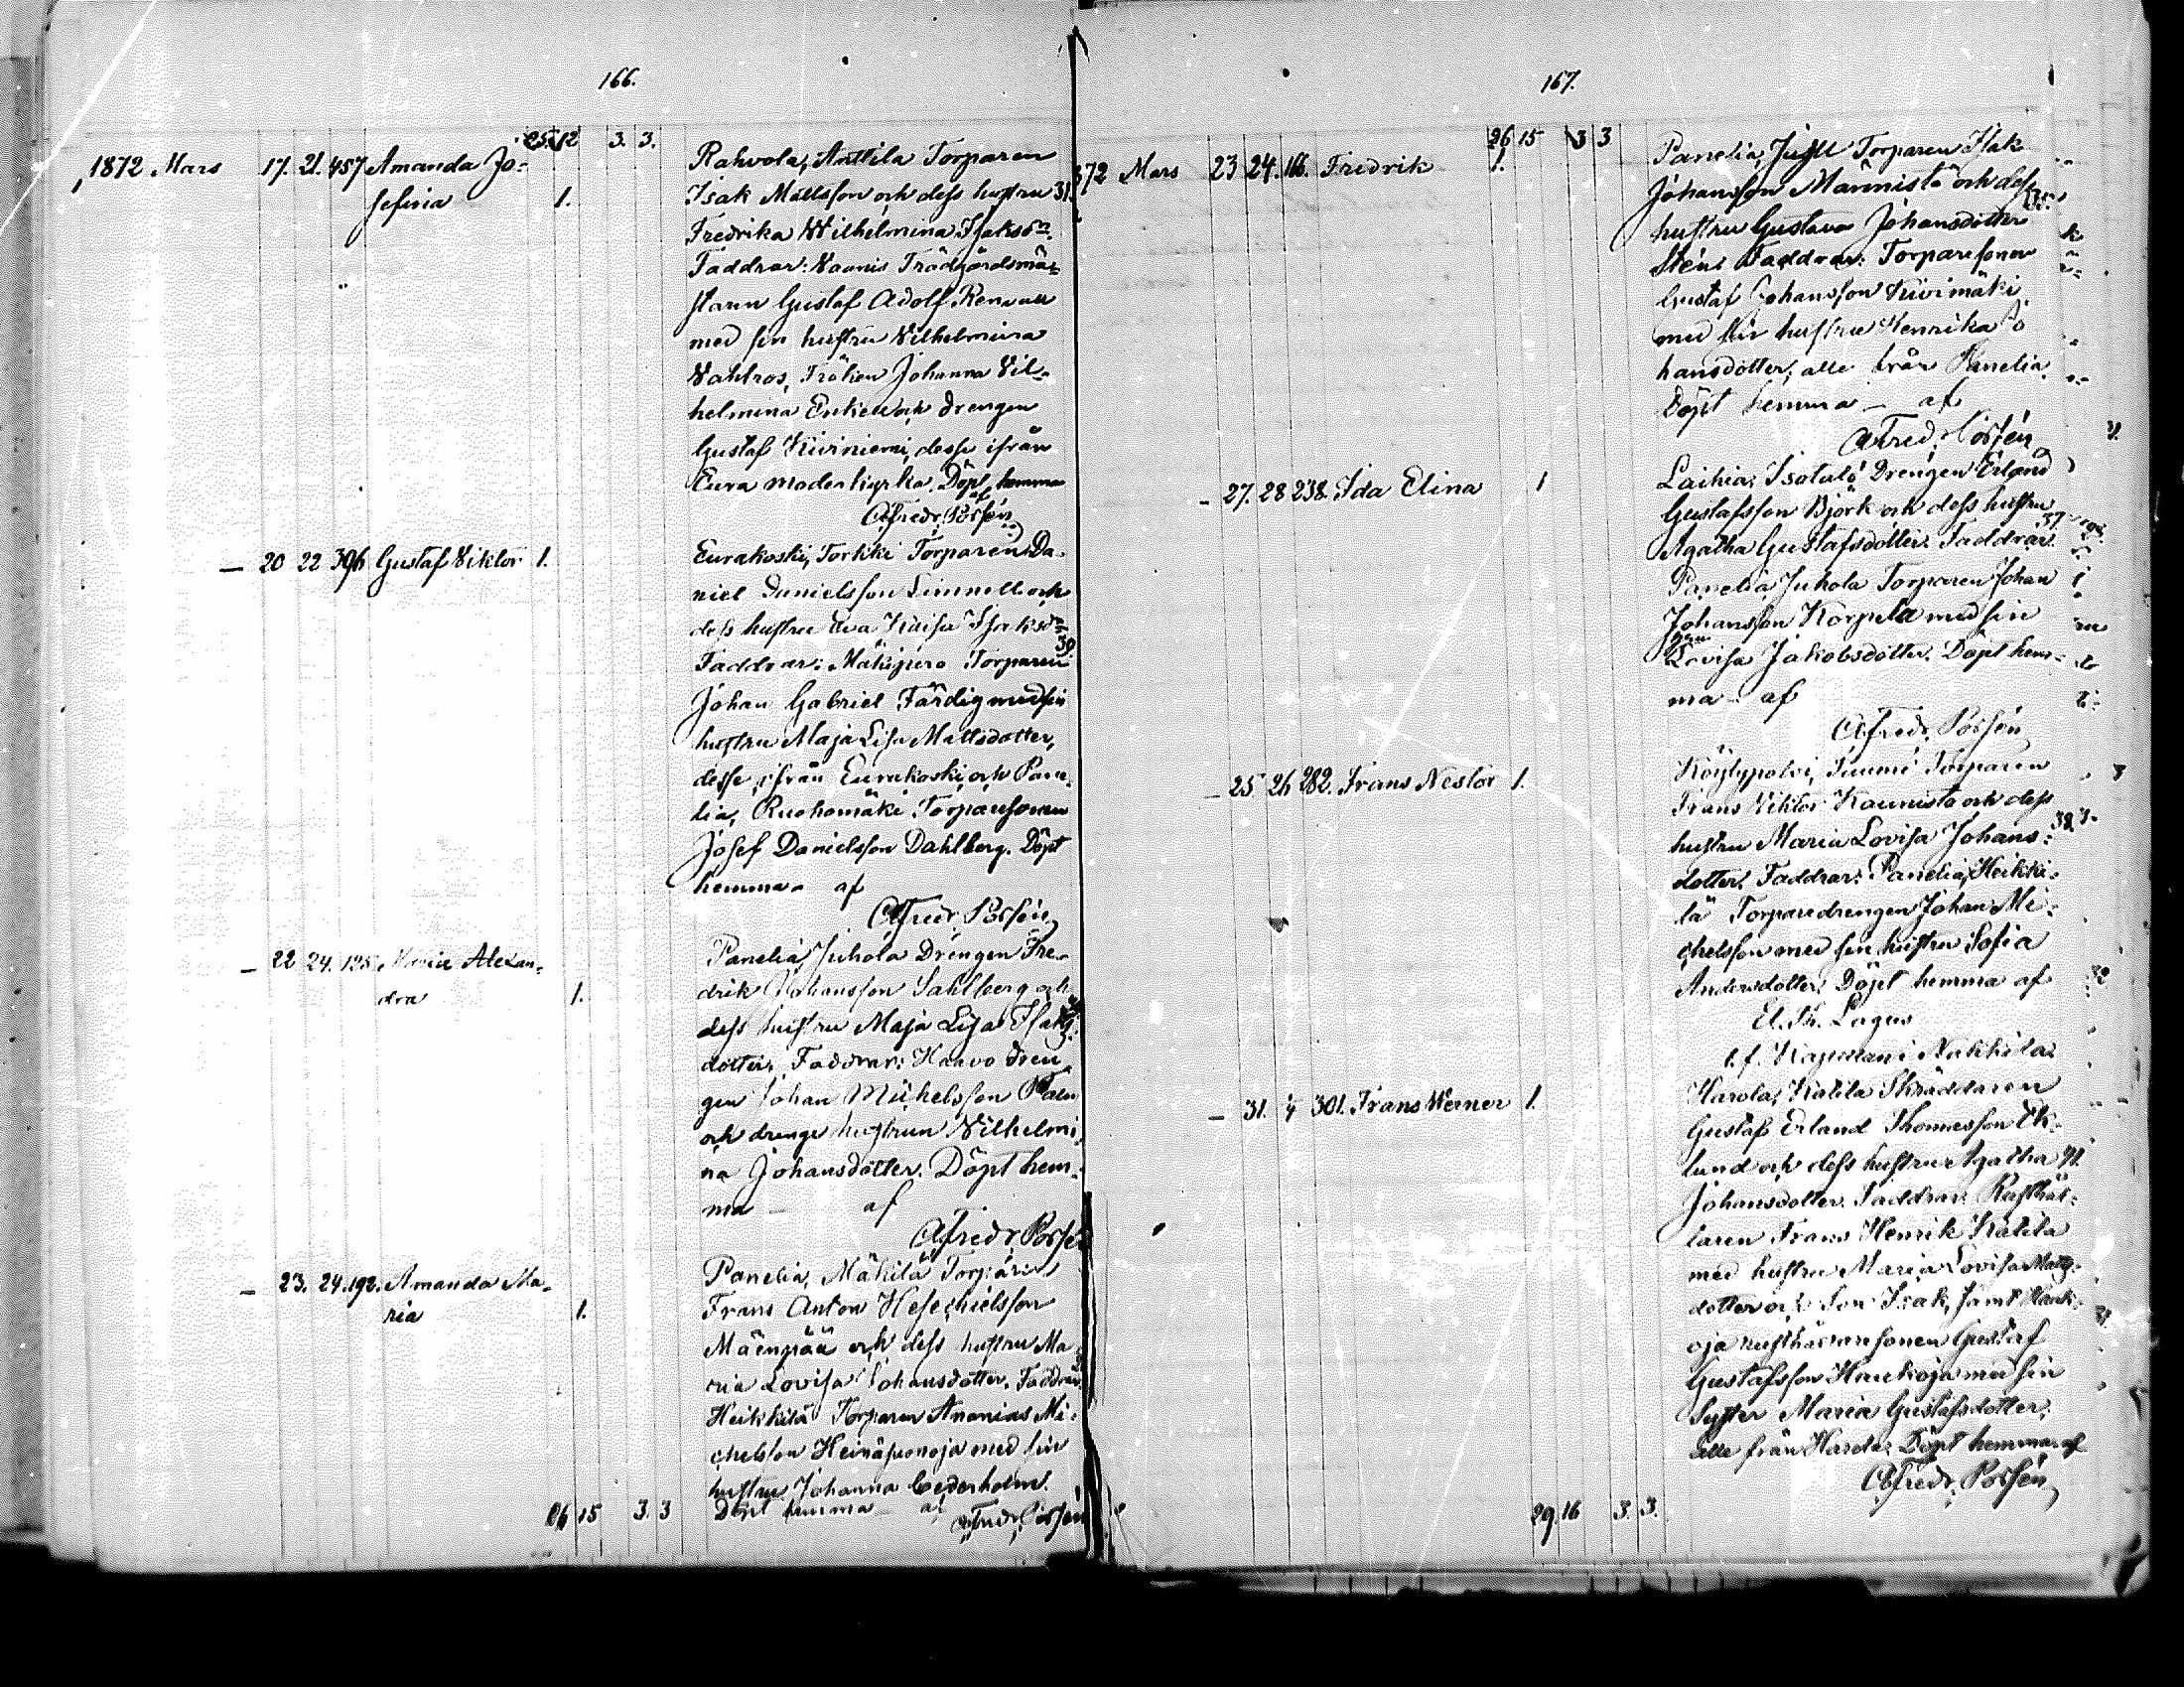 166.
25. 12 3. 3.
1872 Mars 17. 21. 457 Amanda Jo-
sefina 1.
Rahvola, Anttila Torparen
Isak Mattsson och dess hustru 31.
Fredrika Wilhelmina Isaksdr.
Faddrar: Trädgårdsmäs-
taren Gustaf Adolf
med sin hustru Vilhelmina
Vahlros, Fröken Johanna Vil-
helmina och drengen
Gustaf Kiviniemi, desse ifrån
Eura moderkyrka. Döpt hemma
af
Alfredr. Possén
— 20 22 396 Gustaf Viktor 1.
Eurakoski, Torkki Torparen Da-
niel Danielsson Limnell och
dess hustru Eva Kaisa Isaksdr. 39
Faddrar: Mäkipero Torparen
Johan Gabriel Färdig med sin
hustru Maja Lisa Mattsdotter,
desse ifrån Eurakoski, och Pane-
lia, Ruohomäki Torparesonen
Josef Danielsson Dahlberg. Döpt
hemma — af
Alfredr. Possén
— 22 24. 195. Maria Alexan-
dra 1.
Panelia, Juhola Drengen Fre-
drik Johansson Sahlberg och
dess hustru Maja Lisa Isaks-
dotter. Faddrar: Haavo dren-
gen Johan Michelsson Palm
och drengehustrun Vilhelmi-
na Johansdotter. Döpt hem-
ma — af
Alfredr. Possé
— 23. 24. 192. Amanda Ma-
ria 1.
Panelia, Mäkilä Torparen
Frans Anton Hesechielsson
Mäenpää och dess hustru Ma-
ria Lovisa Johansdotter. Faddrar:
Heikkilä Torparen Ananias Mi-
chelsson Heinäsuonoja med sin
hustru Johanna Cederholm.
Döpt hemma — af Alfredr. Possén
26 15 3. 3
167.
26 15 3 3
872 Mars 23 24. 166. Fredrik 1.
Panelia, Torparen Isak
Johansson Männistö och dess
hustru Gustava Johansdotter 35.
Stén. Faddrar: Torparesonen
Gustaf Johansson Kivimäki
med sin hustru Henrika Jo
hansdotter, alle från Panelia.
Döpt hemma — af
Alfredr. Possén
— 27. 28 238. Ida Elina 1
Laihia, Isotalo Drengen Erland
Gustafsson Björk och dess hustru
Agatha Gustafsdotter. Faddrar: 37
Panelia, Juhola Torparen Johan
Johansson Korpela med sin
Lovisa Jakobsdotter. Döpt hem-
ma — af
Alfredr. Possén
— 25 26 282. Frans Nestor 1.
Köylypolvi, Torparen
Frans Viktor Kaunisto och dess
hustru Maria Lovisa Johans- 38
dotter. Faddrar: Panelia, Heikki-
lä Torparedrengen Johan Mi-
chelsson med sin hustru Sofia
Andersdotter. Döpt hemma af
El. Th. Lagus
t.f. Kaplan i Nakkila
— 31. 4 301. Frans Werner 1.
Harola, Katila Skräddaren
Gustaf Erland Thomasson Ek-
lund och dess hustru Agatha 41.
Johansdotter. Faddrar: Rusthål-
laren Frans Henrik Katila
med hustru Maria Lovisa Matts-
dotter och son Isak, samt Hauk-
oja rusthållaresonen Gustaf
Gustafsson Haukoja med sin
syster Maria Gustafsdotter,
alle från Harola. Döpt hemma af
Alfredr. Possén
29. 16 3. 3.